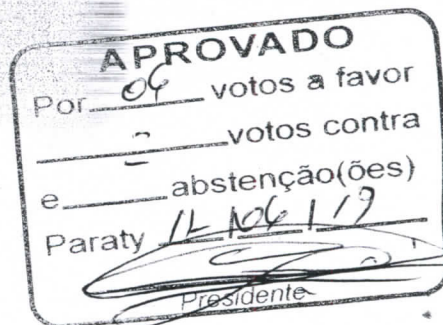 APROVADO
Por 06 votos a favor
- votos contra
e abstenção(ões)
Paraty 12 / 06 / 19
Presidente